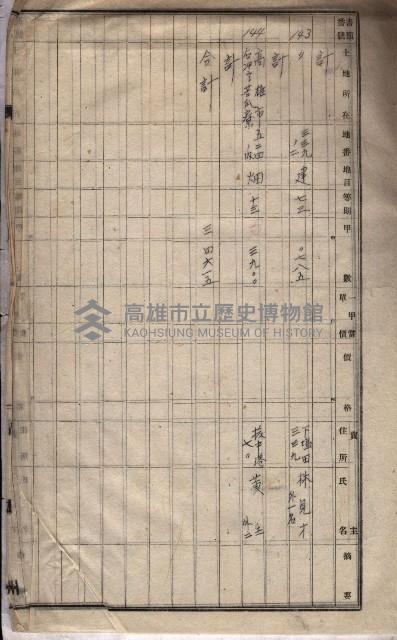 書類番號 土地所在 地番 地目 等則 甲數 一甲當單價 價格 賣主 住所 氏名 摘要
計
143 〃 三三九 建 七三 〇七八五 下塩田 三三九 林見才 外一名
計
144 高雄市 五二四 畑 十三 三九〇〇 黃 外二
計
合計 三四六一五
高雄市立歷史博物館
KAOHSIUNG MUSEUM OF HISTORY